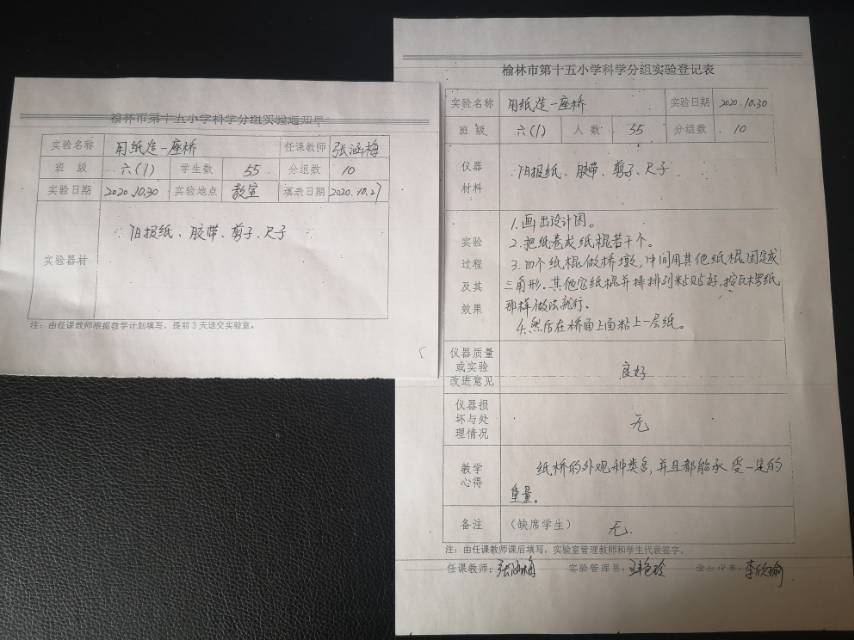 榆林市第十五小学科学分组实验通知单
实验名称 用纸造一座桥 任课教师 张涵梅
班 级 六(1) 学生数 55 分组数 10
实验日期 2020.10.30 实验地点 教室 填表日期 2020.10.27
实验器材 旧报纸、胶带、剪子、尺子
注：由任课教师根据教学计划填写，提前3天送交实验室。
榆林市第十五小学科学分组实验登记表
实验名称 用纸造一座桥 实验日期 2020.10.30
班 级 六(1) 人 数 55 分组数 10
仪器
材料
旧报纸、胶带、剪子、尺子
实验
过程
及其
效果
1.画出设计图。
2.把纸卷成纸棍若干个。
3.四个纸棍做桥墩，中间用其他纸棍固定成
三角形。其他空纸棍并排排列粘贴好，按瓦楞纸
那样做法就行。
4.然后在桥面上面粘上一层纸。
仪器质量
或实验
改进意见
良好
仪器损
坏与处
理情况
无
教学
心得
纸桥的外观种类多，并且都能承受一定的
重量。
备注 （缺席学生） 无.
注：由任课教师课后填写，实验室管理教师和学生代表签字。
任课教师：张涵梅 实验管理员： 学生代表：李欣瑜